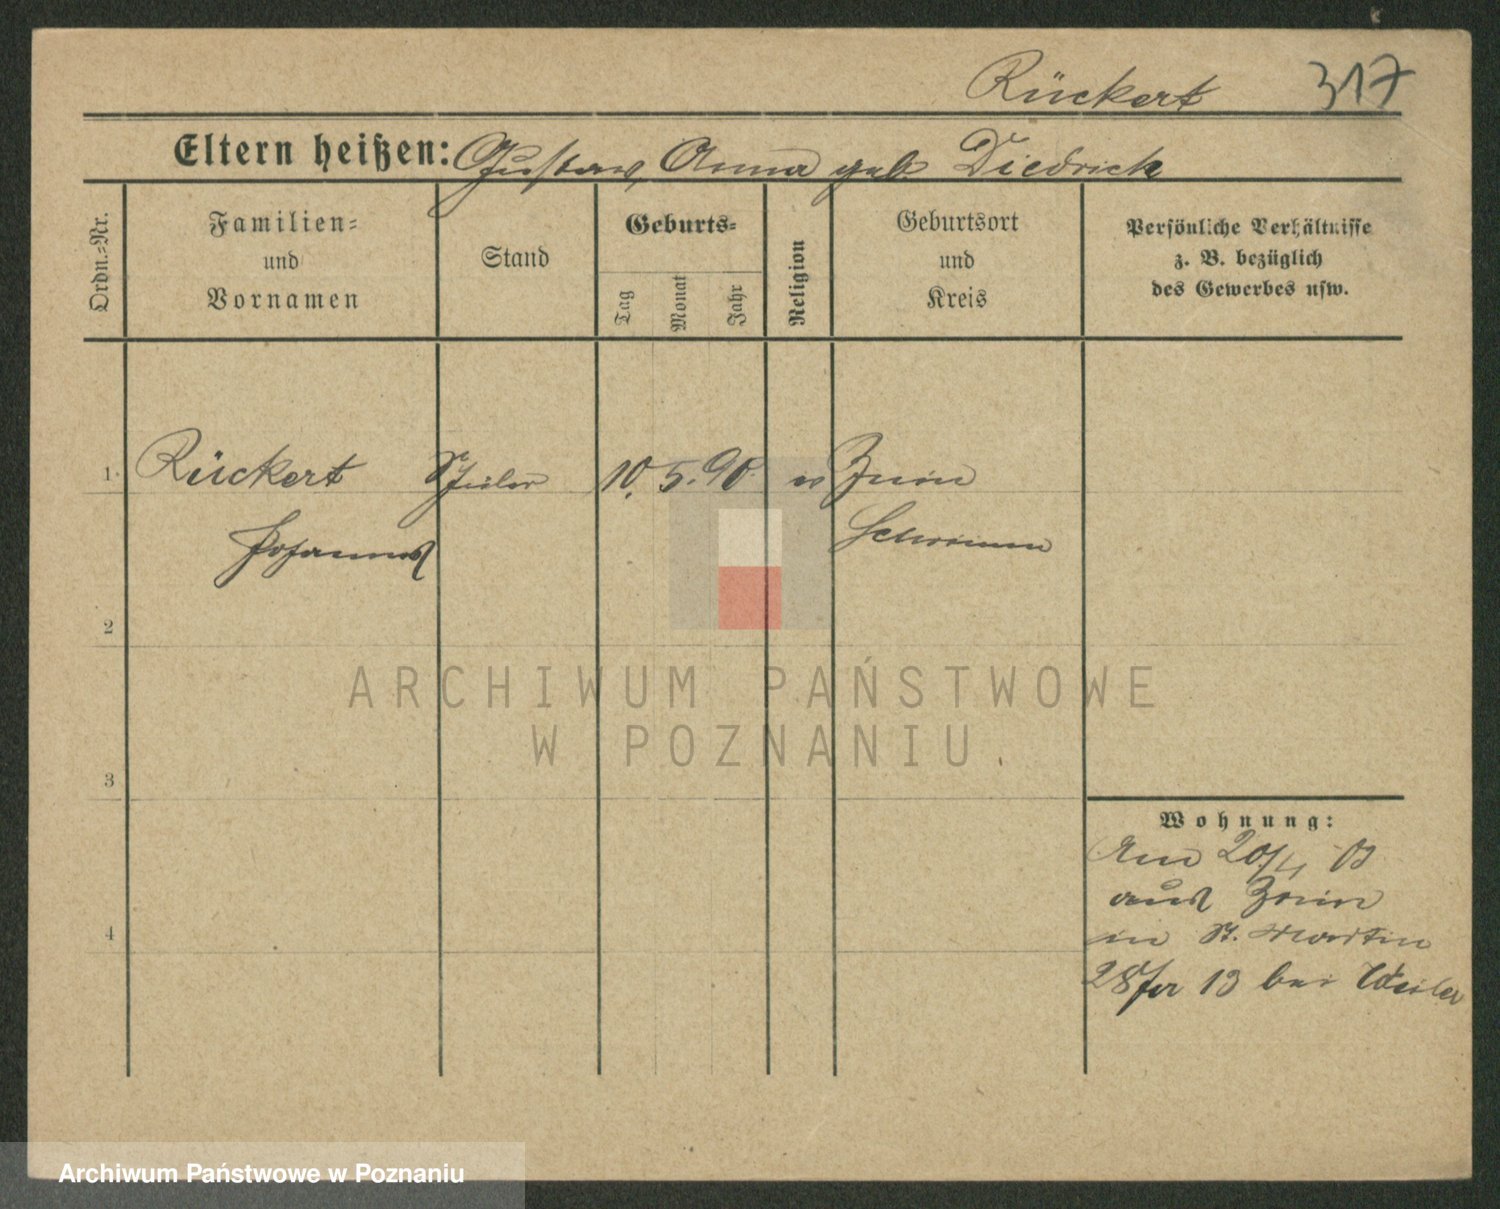 Rückert 317
Eltern heißen: Gustav, Anna geb. Diedrich
Ordn.-Nr.
Familien-
und
Vornamen
Stand
Geburts-
Tag
Monat
Jahr
Religion
Geburtsort
und
Kreis
Persönliche Verhältnisse
z. B. bezüglich
des Gewerbes usw.
1. Rückert Schüler 10. 5. 90. Znin
Johannes
2
3
4
Wohnung:
Am 20/4 03
aus Znin
in St. Martin
28 13 bei
ARCHIWUM PAŃSTWOWE
W POZNANIU.
Archiwum Państwowe w Poznaniu